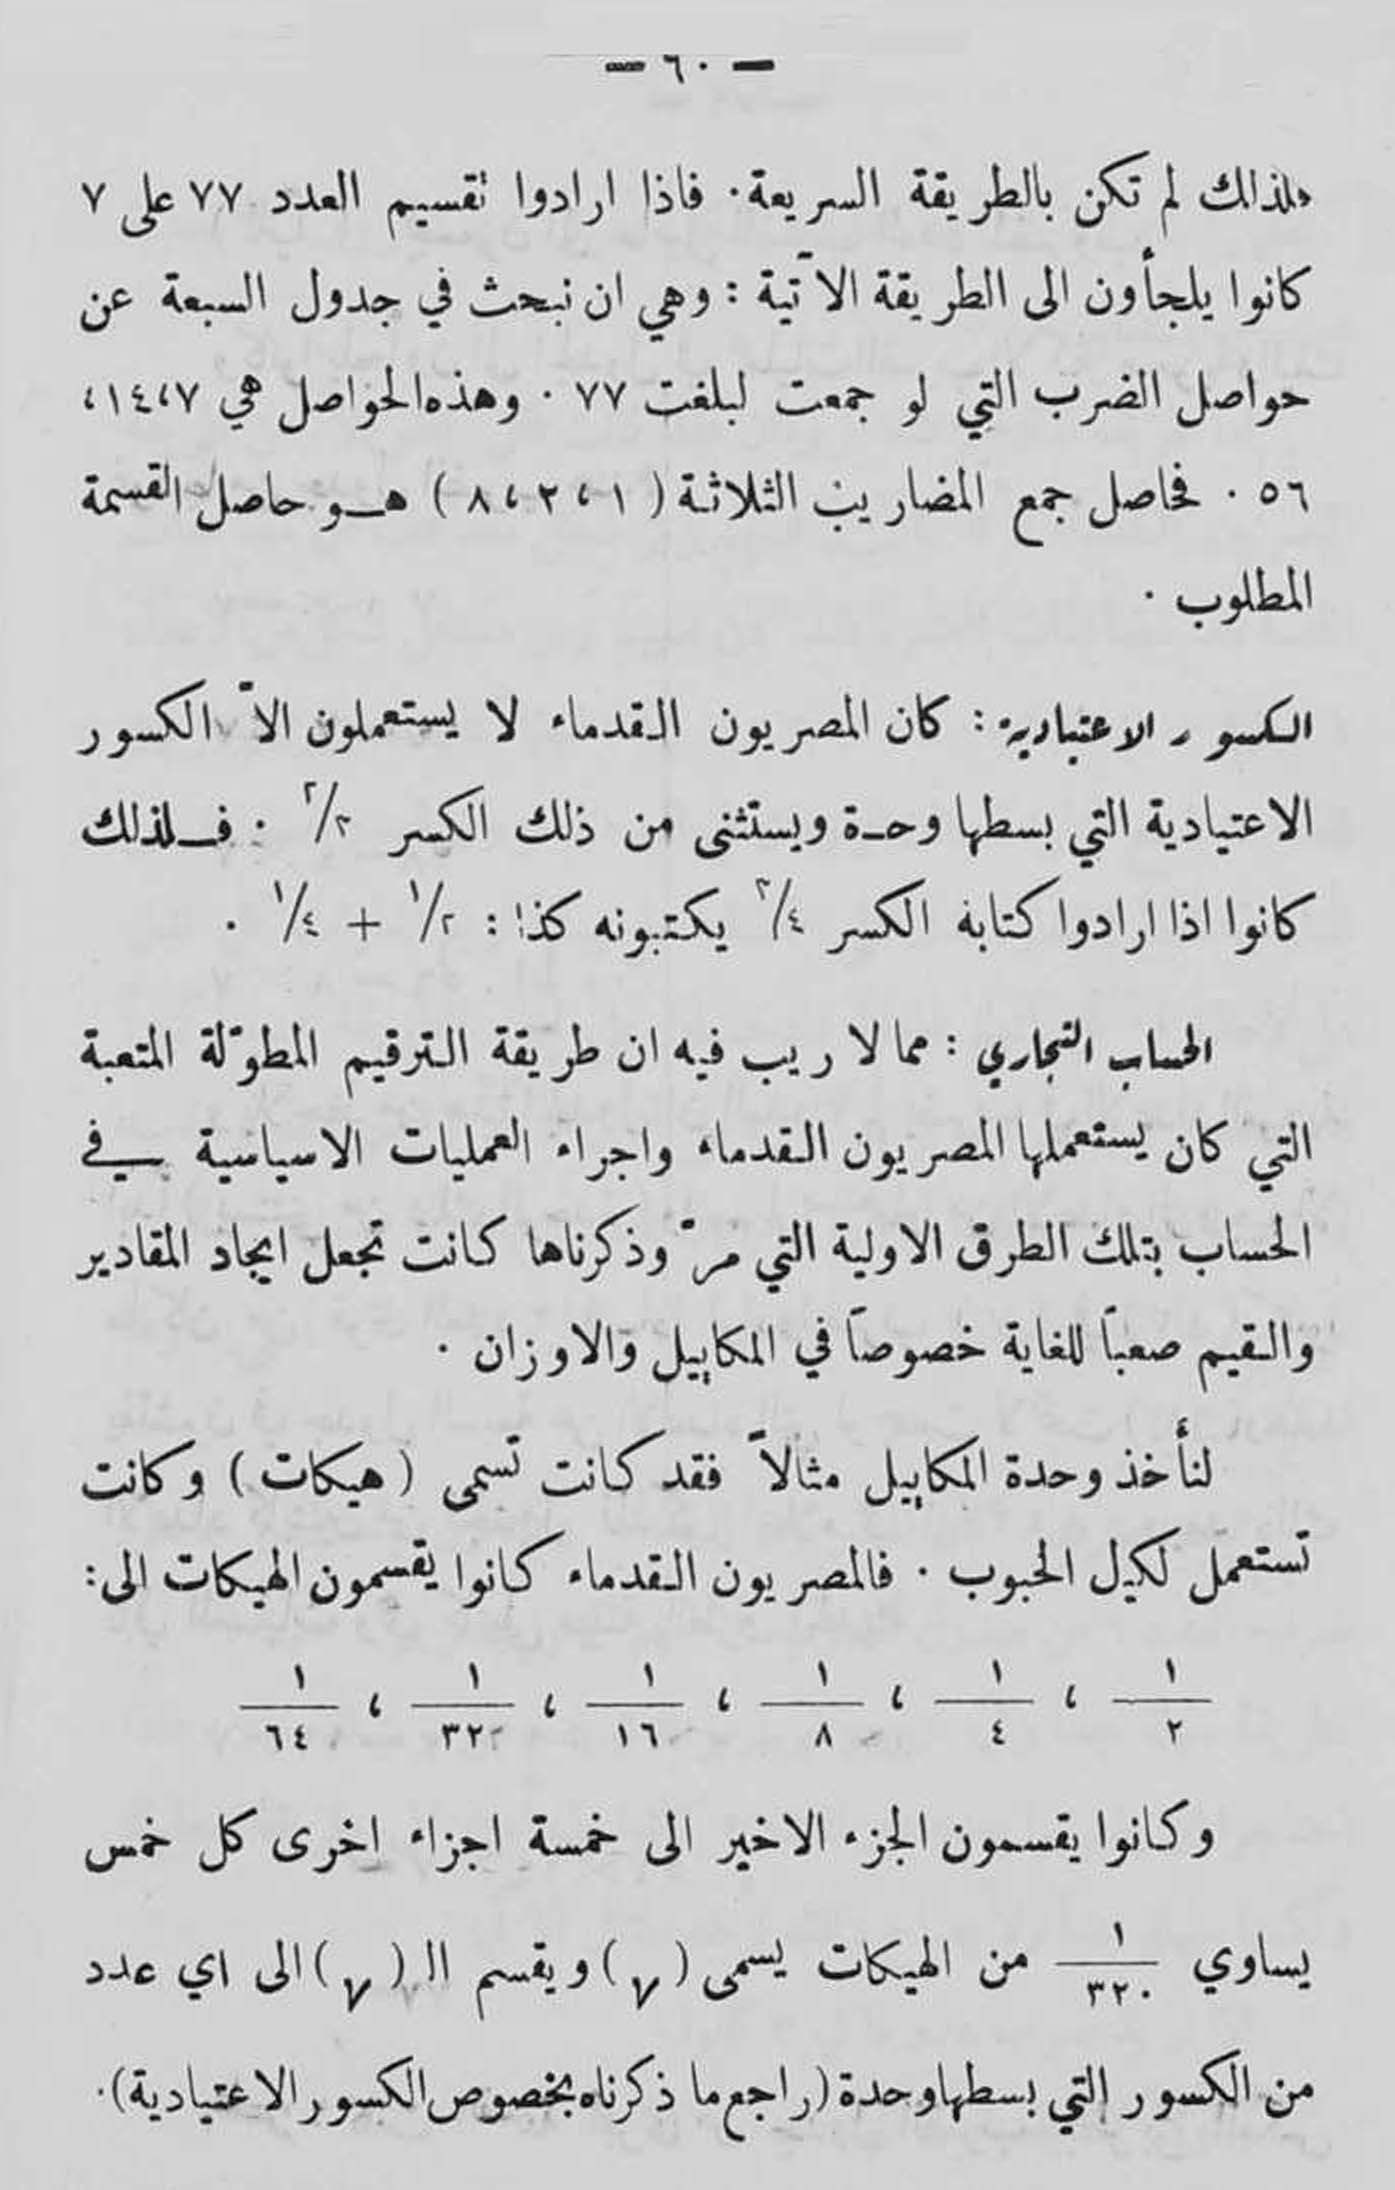 — ٦٠ —
ولذلك لم تكن بالطريقة السريعة. فاذا ارادوا تقسيم العدد ٧٧ على ٧
كانوا يلجأون الى الطريقة الآتية : وهي ان نبحث في جدول السبعة عن
حواصل الضرب التي لو جمعت لبلغت ٧٧ . وهذه الحواصل هي ٧،١٤،
٥٦ . فحاصل جمع المضاريب الثلاثة ( ١ ، ٢ ، ٨ ) هو حاصل القسمة
المطلوب .
الكسور الاعتيادية : كان المصريون القدماء لا يستعملون الاّ الكسور
الاعتيادية التي بسطها وحدة ويستثنى من ذلك الكسر ٢/٣ : فلذلك
كانوا اذا ارادوا كتابة الكسر ٣/٤ يكتبونه كذا : ١/٢ + ١/٤ .
الحساب التجاري : مما لا ريب فيه ان طريقة الترقيم المطوّلة المتعبة
التي كان يستعملها المصريون القدماء واجراء العمليات الاسياسية في
الحساب بتلك الطرق الاولية التي مرّ وذكرناها كانت تجعل ايجاد المقادير
والقيم صعباً للغاية خصوصاً في المكاييل والاوزان .
لنأخذ وحدة المكاييل مثالاً فقد كانت تسمى ( هيكات ) وكانت
تستعمل لكيل الحبوب . فالمصريون القدماء كانوا يقسمون الهيكات الى :
١/٢ ، ١/٤ ، ١/٨ ، ١/١٦ ، ١/٣٢ ، ١/٦٤
وكانوا يقسمون الجزء الاخير الى خمسة اجزاء اخرى كل خمس
يساوي ١/٣٢٠ من الهيكات يسمى ( ) ويقسم الـ ( ) الى اي عدد
من الكسور التي بسطها وحدة (راجع ما ذكرناه بخصوص الكسور الاعتيادية).